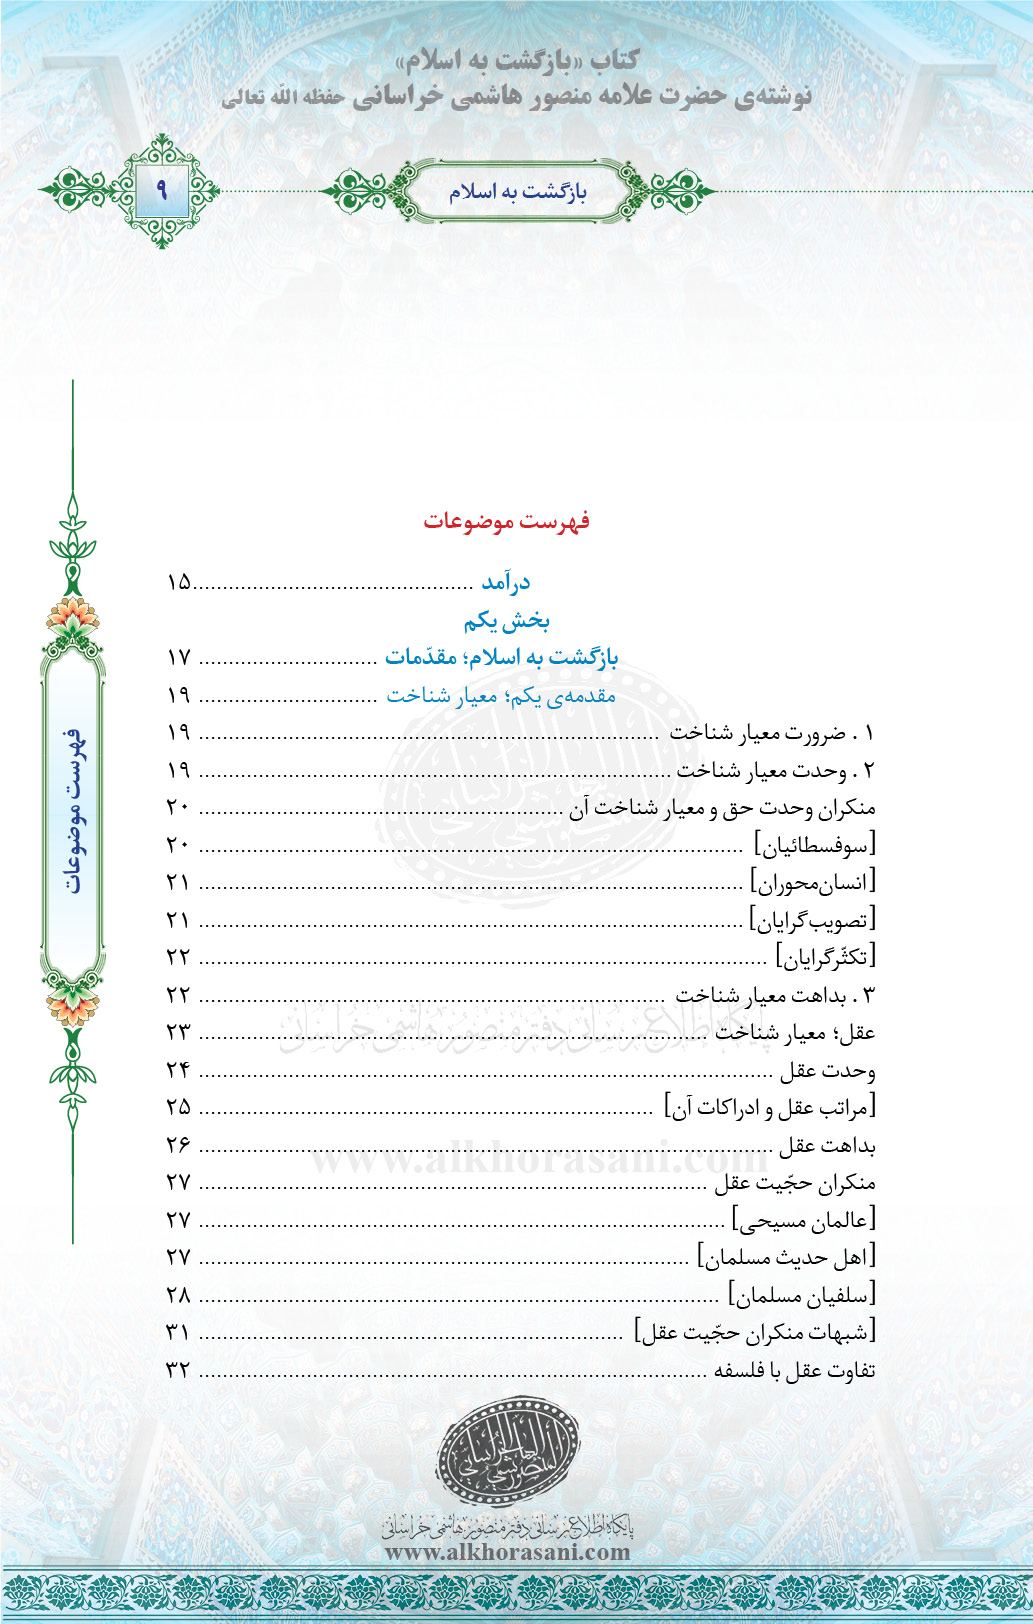 کتاب «بازگشت به اسلام»
نوشته‌ی حضرت علامه منصور هاشمی خراسانی حفظه الله تعالی
بازگشت به اسلام
۹
فهرست موضوعات
درآمد ................................................ ۱۵
بخش یکم
بازگشت به اسلام؛ مقدّمات .............................. ۱۷
مقدمه‌ی یکم؛ معیار شناخت .............................. ۱۹
۱ . ضرورت معیار شناخت .............................................................................. ۱۹
۲ . وحدت معیار شناخت ................................................................................ ۱۹
منکران وحدت حق و معیار شناخت آن .............................................................. ۲۰
[سوفسطائیان] ............................................................................................ ۲۰
[انسان‌محوران] ............................................................................................ ۲۱
[تصویب‌گرایان] ............................................................................................ ۲۱
[تکثّرگرایان] ................................................................................................ ۲۲
۳ . بداهت معیار شناخت ............................................................................... ۲۲
عقل؛ معیار شناخت ...................................................................................... ۲۳
وحدت عقل ................................................................................................. ۲۴
[مراتب عقل و ادراکات آن] ............................................................................. ۲۵
بداهت عقل ................................................................................................. ۲۶
منکران حجّیت عقل ...................................................................................... ۲۷
[عالمان مسیحی] ......................................................................................... ۲۷
[اهل حدیث مسلمان] ................................................................................... ۲۷
[سلفیان مسلمان] ........................................................................................ ۲۸
[شبهات منکران حجّیت عقل] ........................................................................ ۳۱
تفاوت عقل با فلسفه ...................................................................................... ۳۲
فهرست موضوعات
پایگاه اطلاع‌رسانی دفتر منصور هاشمی خراسانی
www.alkhorasani.com
پایگاه اطلاع‌رسانی دفتر منصور هاشمی خراسانی
www.alkhorasani.com